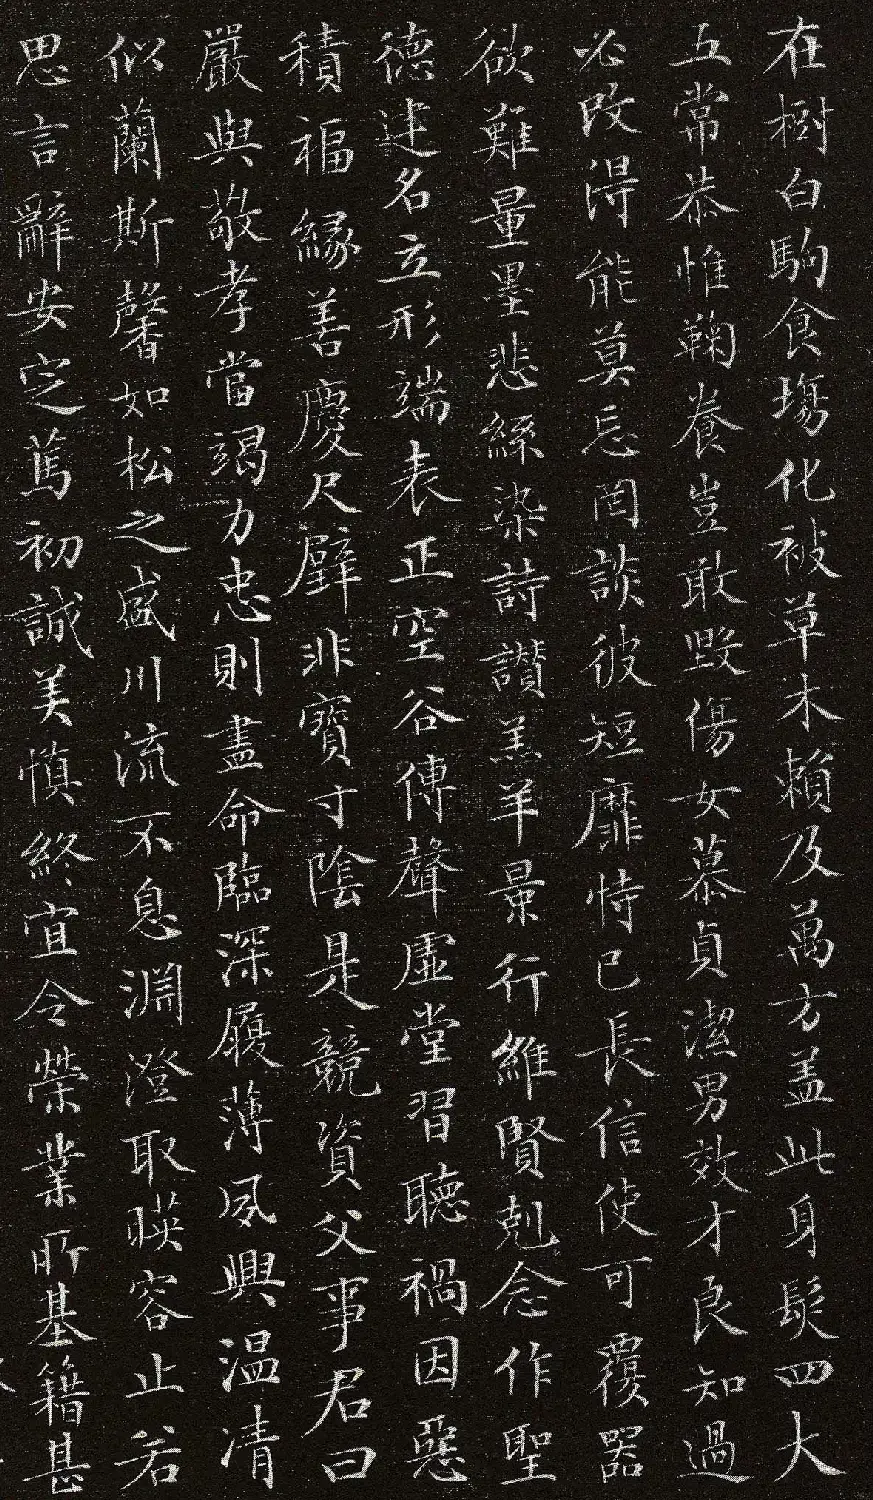 在樹白駒食場化被草木賴及萬方盖此身髮四大
五常恭惟鞠養豈敢毀傷女慕貞潔男效才良知過
必改得能莫忘罔談彼短靡恃己長信使可覆器
欲難量墨悲絲染詩讃羔羊景行維賢剋念作聖
德建名立形端表正空谷傳聲虛堂習聽禍因惡
積福緣善慶尺璧非寶寸陰是競資父事君曰
嚴與敬孝當竭力忠則盡命臨深履薄夙興温清
似蘭斯馨如松之盛川流不息淵澄取暎容止若
思言辭安定篤初誠美慎終宜令榮業所基籍甚